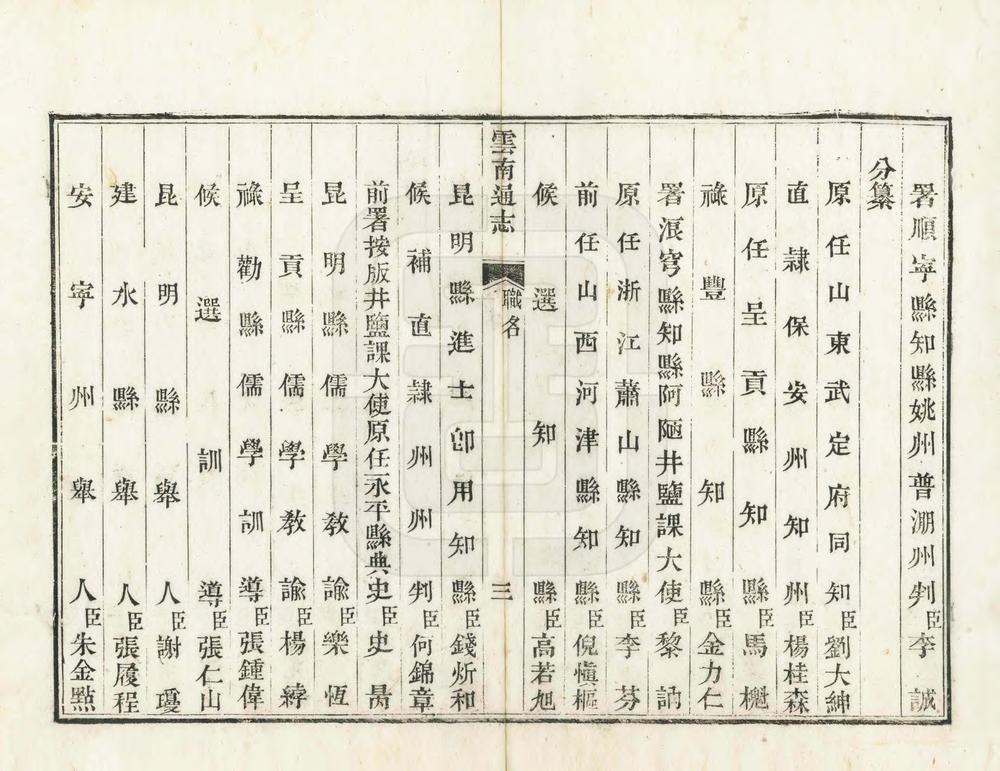 署順寧縣知縣姚州普淜州判臣李誠
分纂
原任山東武定府同知臣劉大紳
直隸保安州知州臣楊桂森
原任呈貢縣知縣臣馬
祿豐縣知縣臣金力仁
署浪穹縣知縣阿陋井鹽課大使臣黎
原任浙江蕭山縣知縣臣李芬
前任山西河津縣知縣臣倪慎樞
候選知縣臣高若旭
雲南通志
職名
三
昆明縣進士卽用知縣臣錢炘和
候補直隸州州判臣何錦章
前署按版井鹽課大使原任永平縣典史臣史
昆明縣儒學教諭臣樂恆
呈貢縣儒學教諭臣楊
祿勸縣儒學訓導臣張鍾偉
候選訓導臣張仁山
昆明縣舉人臣謝瓊
建水縣舉人臣張履程
安寧州舉人臣朱金點